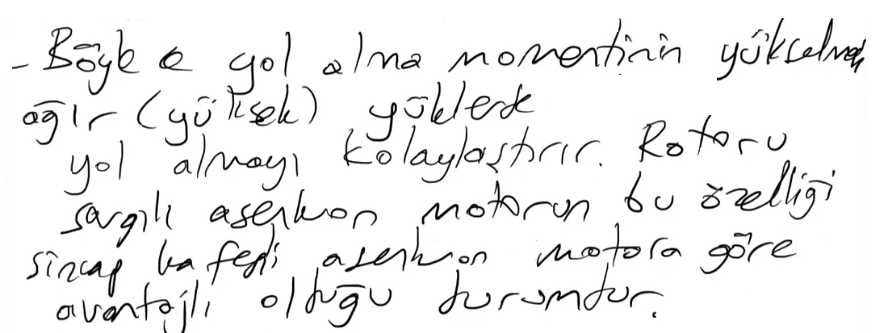 - Böyle yol alma momentinin yükselmesi
ağır (yüksek) yüklerde
yol almayı kolaylaştırır. Rotoru
sargılı asenkron motorun bu özelliği
sincap kafesli asenkron motora göre
avantajlı olduğu durumdur.